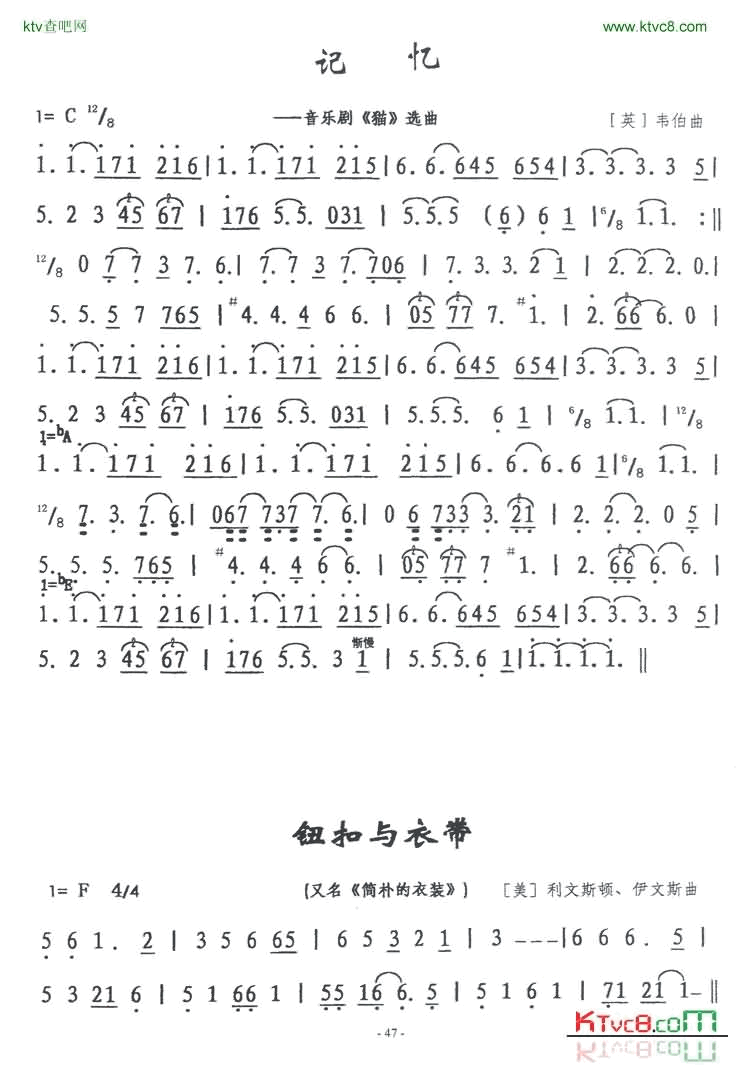 ktv查吧网 www.ktvc8.com
记 忆
1= C 12/8 ——音乐剧《猫》选曲 [英]韦伯曲
1. 1. 171 216 | 1. 1. 171 215 | 6. 6. 645 654 | 3. 3. 3. 3 5 |
5. 2 3 45 67 | 176 5.5. 031 | 5.5.5 (6) 6 1 | 6/8 1.1. :||
12/8 0 7 7 3 7. 6. | 7. 7 3 7. 706 | 7. 3. 3. 2 1 | 2. 2. 2. 0. |
5. 5. 5 7 765 | #4. 4. 4 6 6. | 05 77 7. #1. | 2. 66 6. 0 |
1. 1. 171 216 | 1. 1. 171 215 | 6. 6. 645 654 | 3. 3. 3. 3 5 |
5. 2 3 45 67 | 176 5.5. 031 | 5.5.5. 6 1 | 6/8 1.1. | 12/8
1=bA
1. 1. 171 216 | 1. 1. 171 215 | 6. 6. 6. 6 1 | 6/8 1. 1. |
12/8 7. 3. 7. 6. | 067 737 7. 6. | 0 6 733 3. 21 | 2. 2. 2. 0 5 |
5. 5. 5. 765 | #4. 4. 4 6 6. | 05 77 7 #1. | 2. 66 6. 6. |
1=bE
1. 1. 171 216 | 1. 1. 171 215 | 6. 6. 645 654 | 3. 3. 3. 3 5 |
渐慢
5. 2 3 45 67 | 176 5.5. 3 1 | 5.5.5. 6 1 | 1. 1. 1. 1. ||
钮扣与衣带
1= F 4/4 (又名《简朴的衣装》) [美]利文斯顿、伊文斯曲
5 6 1. 2 | 3 5 6 65 | 6 5 3 2 1 | 3 --- | 6 6 6. 5 |
5 3 21 6 | 5 1 66 1 | 55 16 6. 5 | 5 1 6 1 | 71 21 1– ||
KTvc8.com
- 47 -